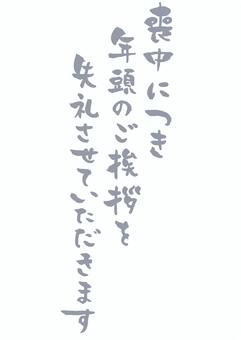 喪中につき
年頭のご挨拶を
失礼させていただきます